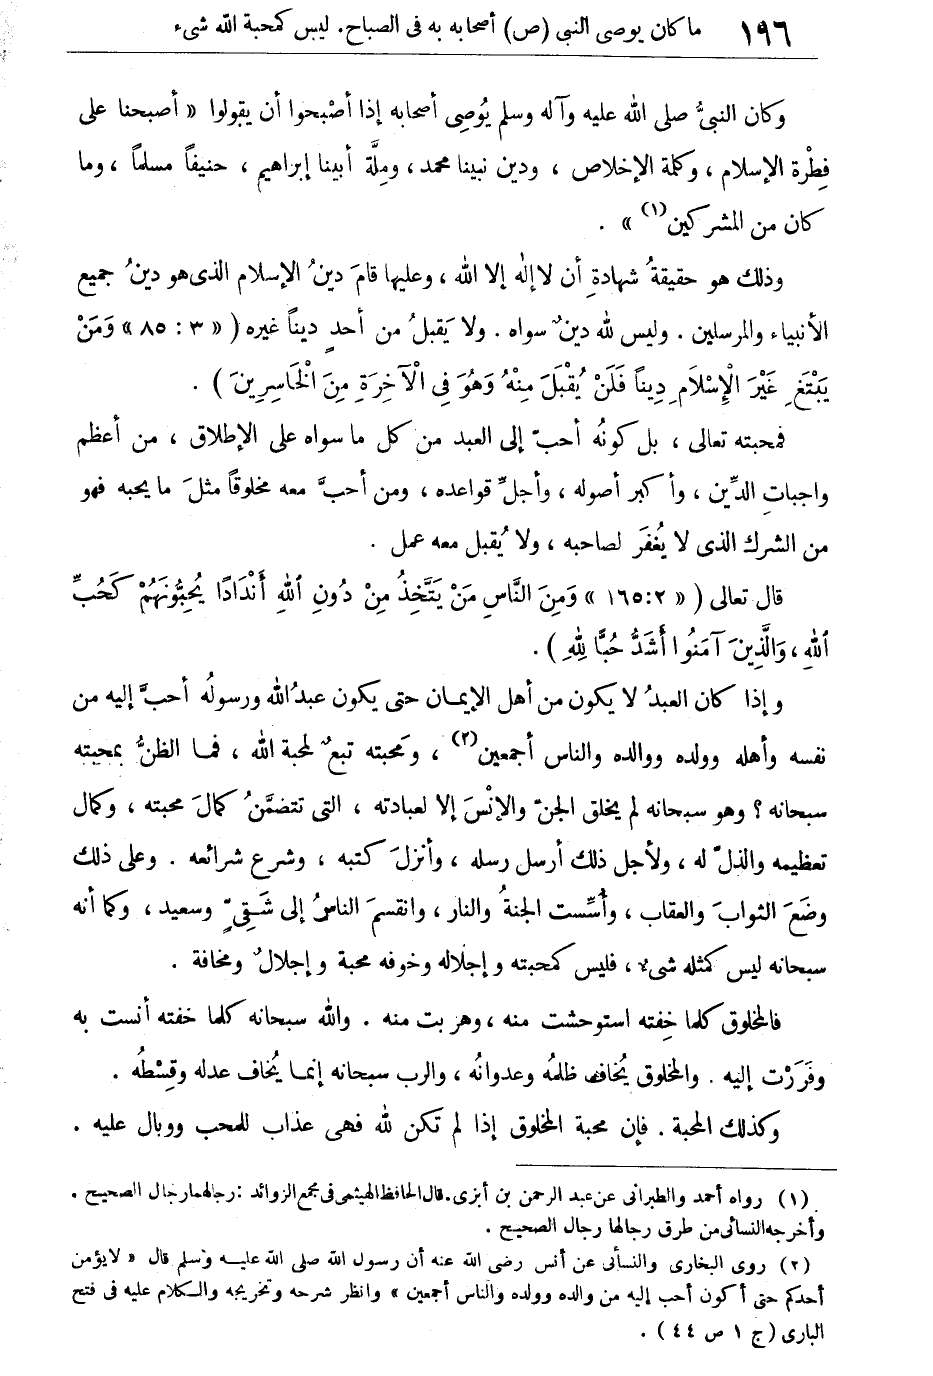 ١٩٦ ما كان يوصى النبي (ص) أصحابه به فى الصباح. ليس كمحبة الله شىء
وكان النبىُّ صلى الله عليه وآله وسلم يُوصِى أصحابه إذا أصْبحوا أن يقولوا « أصبحنا على
فِطْرة الإسلام ، وكلمة الإخلاص ، ودين نبينا محمد، ومِلَّة أبينا إبراهيم ، حنيفاً مسلماً ، وما
كان من المشركين(١) » .
وذلك هو حقيقةُ شهادةِ أن لا إلٰه إلا الله ، وعليها قامَ دينُ الإسلام الذى هو دينُ جميع
الأنبياء والمرسلين . وليس لله دينٌ سواه . ولا يَقبلُ من أحدٍ ديناً غيره ( « ٣ : ٨٥ » وَمَنْ
يَبْتَغِ غَيْرَ الْإِسْلَامِ دِيناً فَلَنْ يُقْبَلَ مِنْهُ وَهُوَ فِى الْآخِرَةِ مِنَ الْخَاسِرِينَ ) .
فمحبته تعالى ، بل كونُه أحبّ إلى العبد من كل ما سواه على الإطلاق ، من أعظم
واجباتِ الدِّين ، وأكبر أصوله ، وأجلِّ قواعده ، ومن أحبَّ معه مخلوقاً مثلَ ما يحبه فهو
من الشرك الذى لا يُغفَر لصاحبه ، ولا يُقبل معه عمل .
قال تعالى ( « ١٦٥:٢ » وَمِنَ النَّاسِ مَنْ يَتَّخِذُ مِنْ دُونِ ٱللهِ أَنْدَادًا يُحِبُّونَهُمْ كَحُبِّ
ٱللهِ ، وَالَّذِينَ آمَنُوا أَشَدُّ حُبًّا لِلهِ ) .
وإذا كان العبدُ لا يكون من أهل الإيمان حتى يكون عبدُ الله ورسولُه أحبَّ إليه من
نفسه وأهله وولده ووالده والناس أجمعين(٢) ، ومَحبته تبعٌ لمحبة الله ، فما الظنُّ بمحبته
سبحانه ؟ وهو سبحانه لم يخلق الجنّ والإنْسَ إلا لعبادته ، التى تتضمَّنُ كمالَ محبته ، وكمال
تعظيمه والذلّ له ، ولأجل ذلك أرسل رسله ، وأنزلَ كتبه ، وشرع شرائعه . وعلى ذلك
وضَعَ الثوابَ والعقاب ، وأُسِّست الجنةُ والنار ، وانقسمَ الناسُ إلى شَقِىٍّ وسعيد ، وكما أنه
سبحانه ليس كمثله شىء ، فليس كمحبته وإجلاله وخوفه محبة وإجلالٌ ومخافة .
فالمخلوق كلما خِفته استوحشت منه ، وهربت منه . والله سبحانه كلما خفته أنست به
وفَرَرْت إليه . والمخلوق يُخاف ظلمُه وعدوانُه ، والرب سبحانه إنما يُخاف عدله وقِسْطُه .
وكذلك المحبة . فإن محبة المخلوق إذا لم تكن لله فهى عذاب للمحب ووبال عليه .
(١) رواه أحمد والطبرانى عن عبد الرحمن بن أبزى. قال الحافظ الهيثمى فى مجمع الزوائد : رجالهما رجال الصحيح .
وأخرجه النسائى من طرق رجالها رجال الصحيح .
(٢) روى البخارى والنسأئى عن أنس رضى الله عنه أن رسول الله صلى الله عليه وسلم قال « لا يؤمن
أحدكم حتى أكون أحب إليه من والده وولده والناس أجمعين » وانظر شرحه وتخريجه والكلام عليه فى فتح
البارى ( ج ١ ص ٤٤ ) .